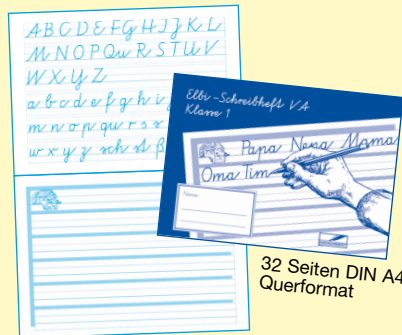 A B C D E F G H I J K L
M N O P Qu R S T U V
W X Y Z
a b c d e f g h i j
m n o p qu r s
w x y z sch st ß
Elbi-Schreibheft VA
Klasse 1
Papa Nena Mama
Oma Tim
Name:
32 Seiten DIN A4
Querformat